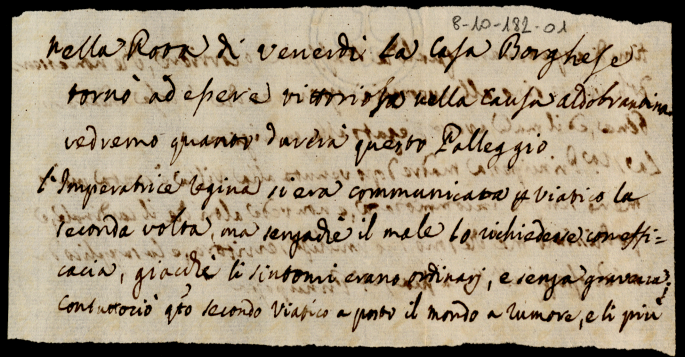 8-10-182-01
nella Rota di venerdi la Casa Borghese
tornò ad essere vittoriosa nella Causa aldobrandina
vedremo quanto durerà questo Palleggio
l'Imperatrice regina si era communicata p viatico la
seconda volta, ma senzache il male lo richiedesse con effi=
cacia, giacche li sintomi erano ordinarj, e senza gravezza;
contuttociò qto secondo Viatico a posto il mondo a rumore, e li più